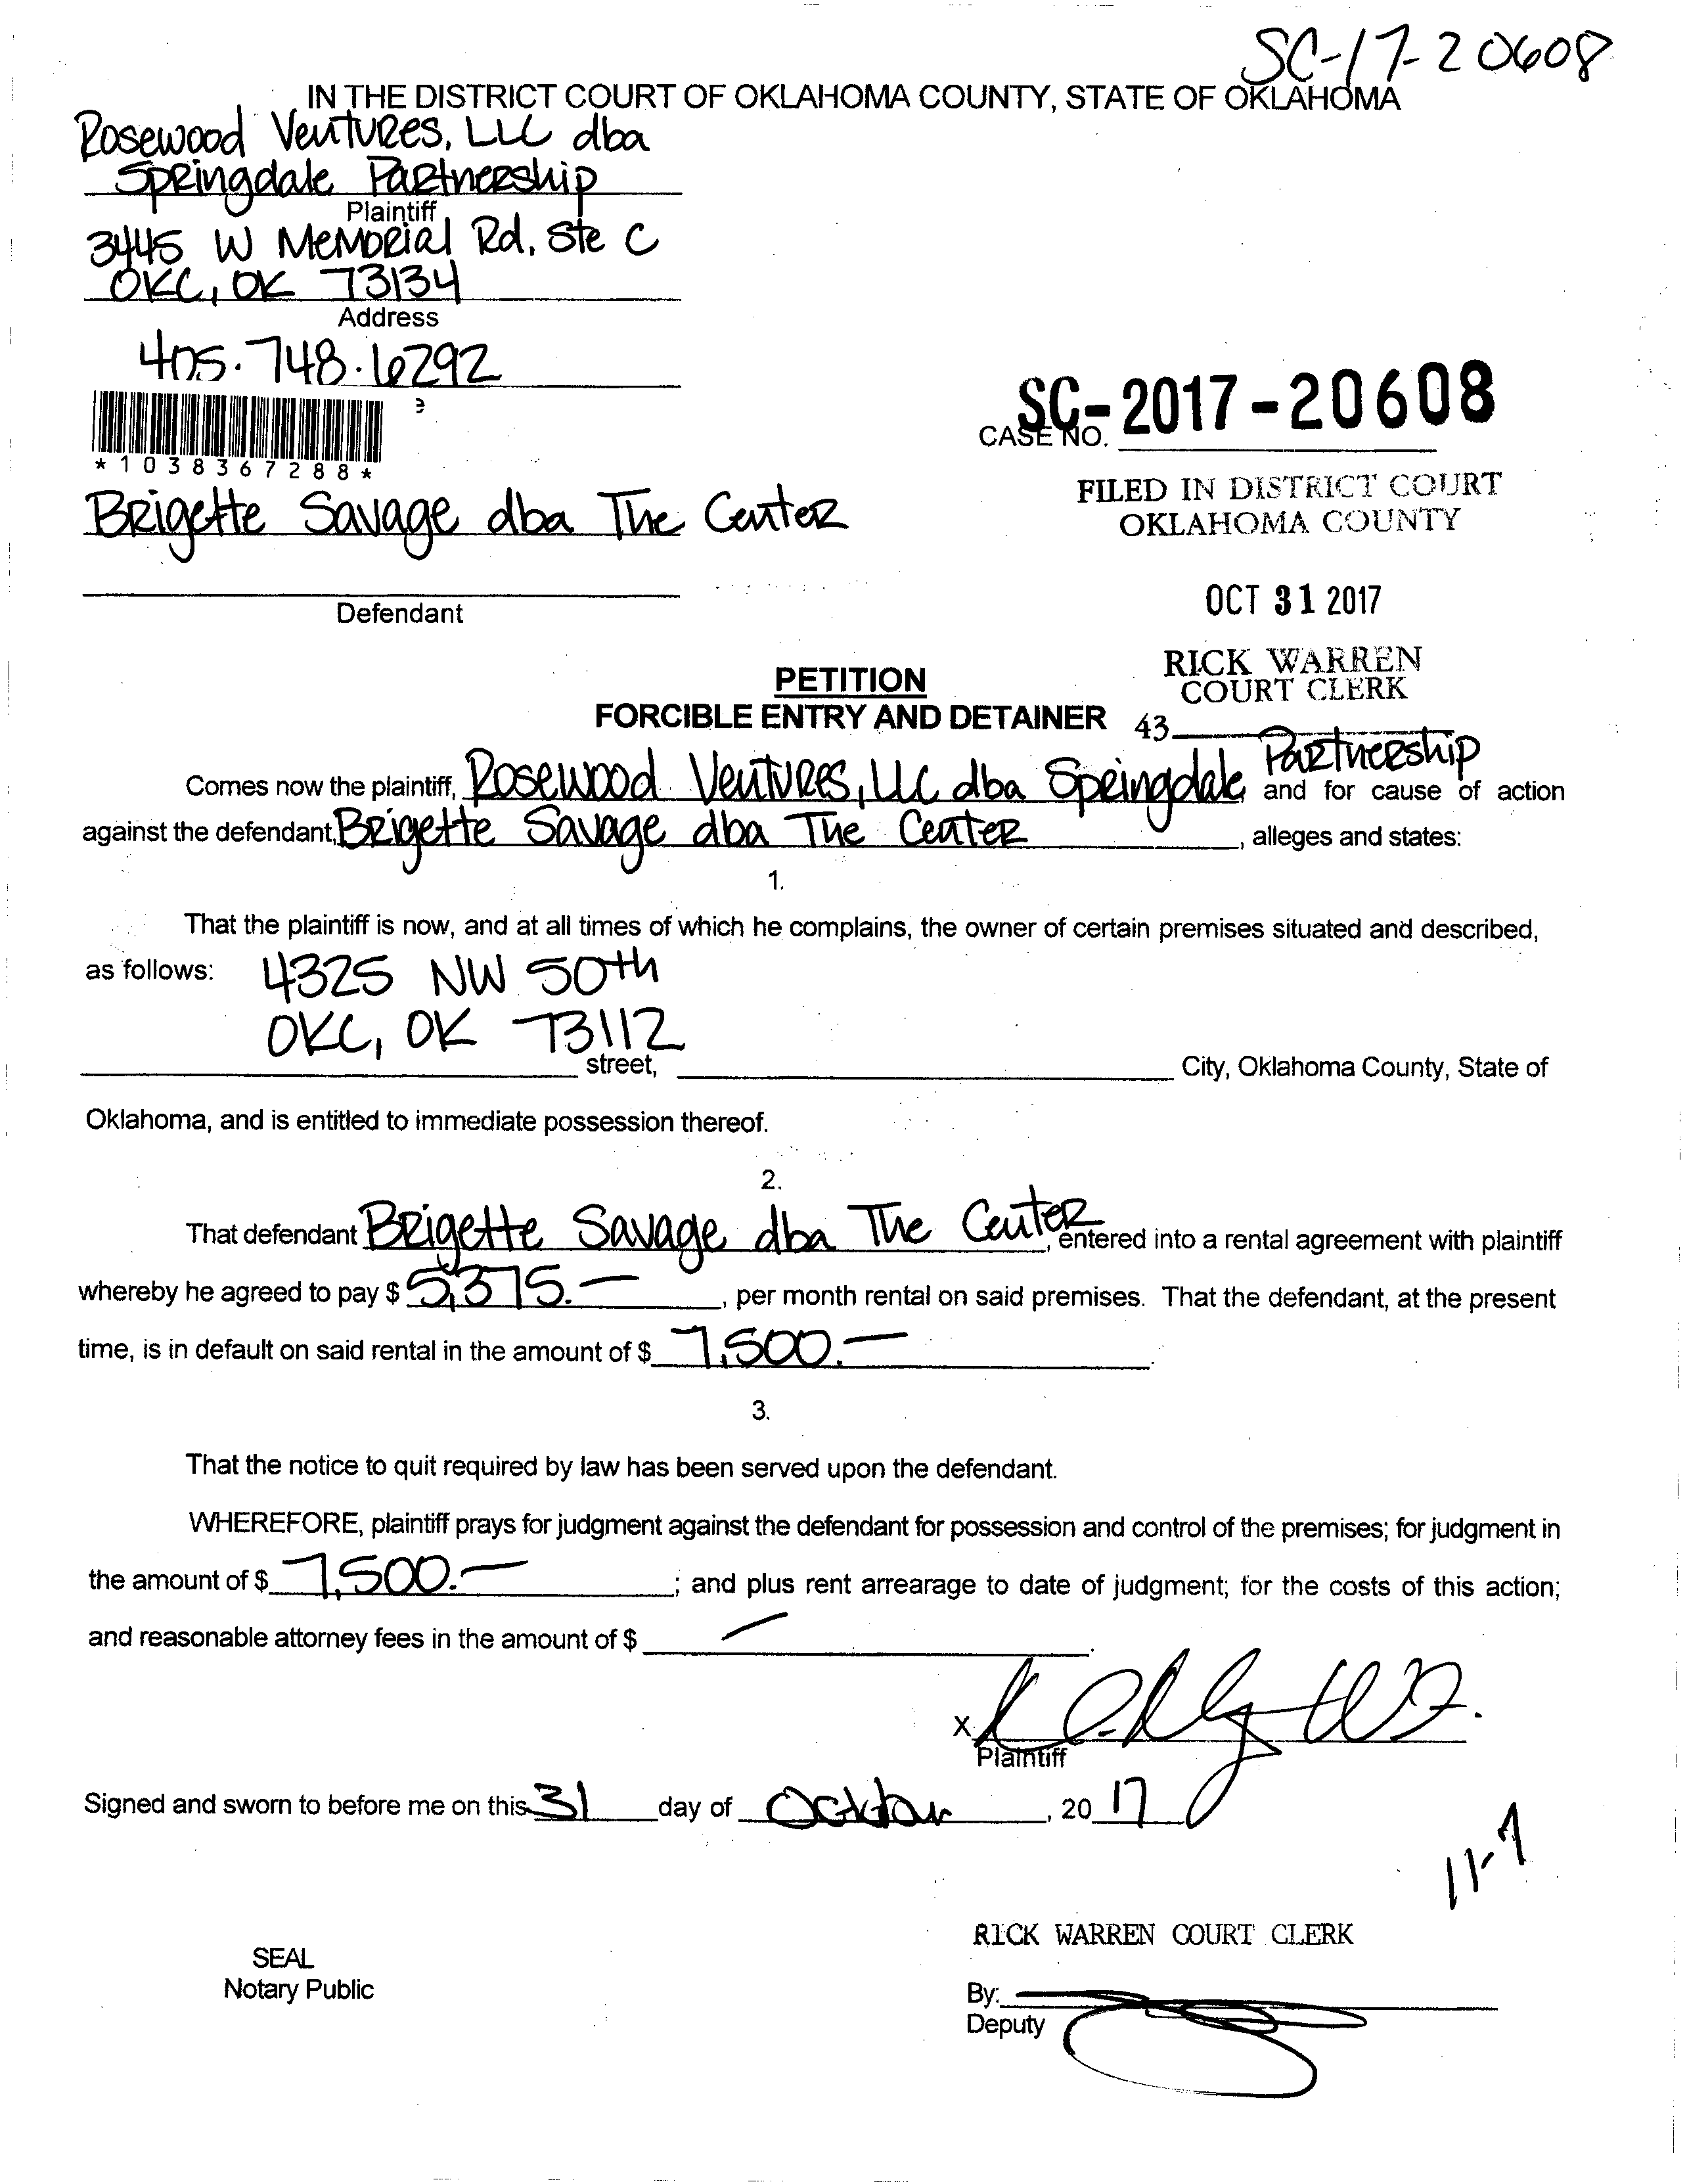 SC-17-20608
IN THE DISTRICT COURT OF OKLAHOMA COUNTY, STATE OF OKLAHOMA
Rosewood Ventures, LLC dba
Springdale Partnership
Plaintiff
3445 W Memorial Rd, Ste C
OKC, OK 73134
Address
405.748.6292
*1038367288*
SC-2017-20608
CASE NO.
FILED IN DISTRICT COURT
OKLAHOMA COUNTY
Brigette Savage dba The Center
Defendant
OCT 31 2017
RICK WARREN
COURT CLERK
43
PETITION
FORCIBLE ENTRY AND DETAINER
Comes now the plaintiff, Rosewood Ventures, LLC dba Springdale Partnership and for cause of action
against the defendant, Brigette Savage dba The Center, alleges and states:
1.
That the plaintiff is now, and at all times of which he complains, the owner of certain premises situated and described,
as follows: 4325 NW 50th
OKC, OK 73112
street, City, Oklahoma County, State of
Oklahoma, and is entitled to immediate possession thereof.
2.
That defendant Brigette Savage dba The Center, entered into a rental agreement with plaintiff
whereby he agreed to pay $ 5,375.—, per month rental on said premises. That the defendant, at the present
time, is in default on said rental in the amount of $ 7,500.—.
3.
That the notice to quit required by law has been served upon the defendant.
WHEREFORE, plaintiff prays for judgment against the defendant for possession and control of the premises; for judgment in
the amount of $ 7,500.—; and plus rent arrearage to date of judgment; for the costs of this action;
and reasonable attorney fees in the amount of $ —.
X
Plaintiff
Signed and sworn to before me on this 31 day of October, 2017
RICK WARREN COURT CLERK
SEAL
Notary Public
By:
Deputy